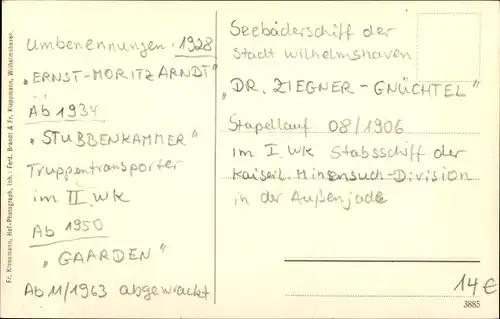 Umbenennungen 1928
"ERNST-MORITZ ARNDT"
Ab 1934
"STUBBENKAMMER"
Truppentransporter
im II WK
Ab 1950
"GAARDEN"
Ab 11/1963 abgewrackt
Seebäderschiff der
Stadt Wilhelmshaven
"DR. ZIEGNER-GNÜCHTEL"
Stapellauf 08/1906
im I. WK Stabsschiff der
Kaiserl. Minensuch-Division
in der Außenjade
14€
3885
Fr. Kloppmann, Hof-Photograph, Inh.: Ferd. Brandt & Fr. Kloppmann, Wilhelmshaven.